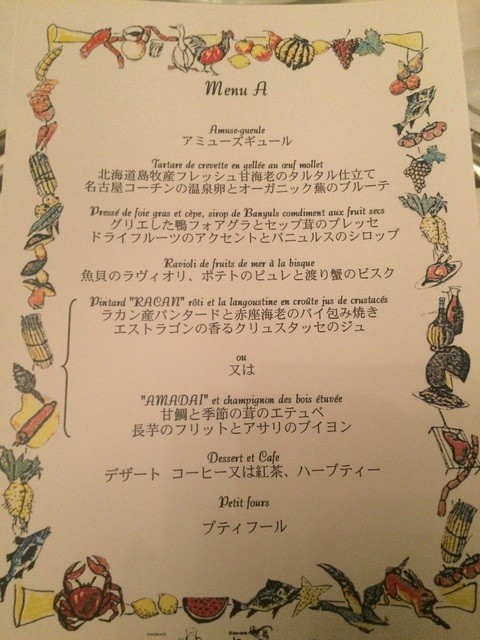 Menu A
Amuse-gueule
アミューズギュール
Tartare de crevette en gellée au œuf mollet
北海道島牧産フレッシュ甘海老のタルタル仕立て
名古屋コーチンの温泉卵とオーガニック蕪のブルーテ
Pressé de foie gras et cèpe, sirop de Banyuls comdiment aux fruit secs
グリエした鴨フォアグラとセップ茸のプレッセ
ドライフルーツのアクセントとバニュルスのシロップ
Ravioli de fruits de mer à la bisque
魚貝のラヴィオリ、ポテトのピュレと渡り蟹のビスク
Pintard "RACAN" rôti et la langoustine en croûte jus de crustacés
ラカン産パンタードと赤座海老のパイ包み焼き
エストラゴンの香るクリュスタッセのジュ
ou
又は
"AMADAI" et champignon des bois étuvée
甘鯛と季節の茸のエテュベ
長芋のフリットとアサリのブイヨン
Dessert et Cafe
デザート コーヒー又は紅茶、ハーブティー
Petit fours
プティフール